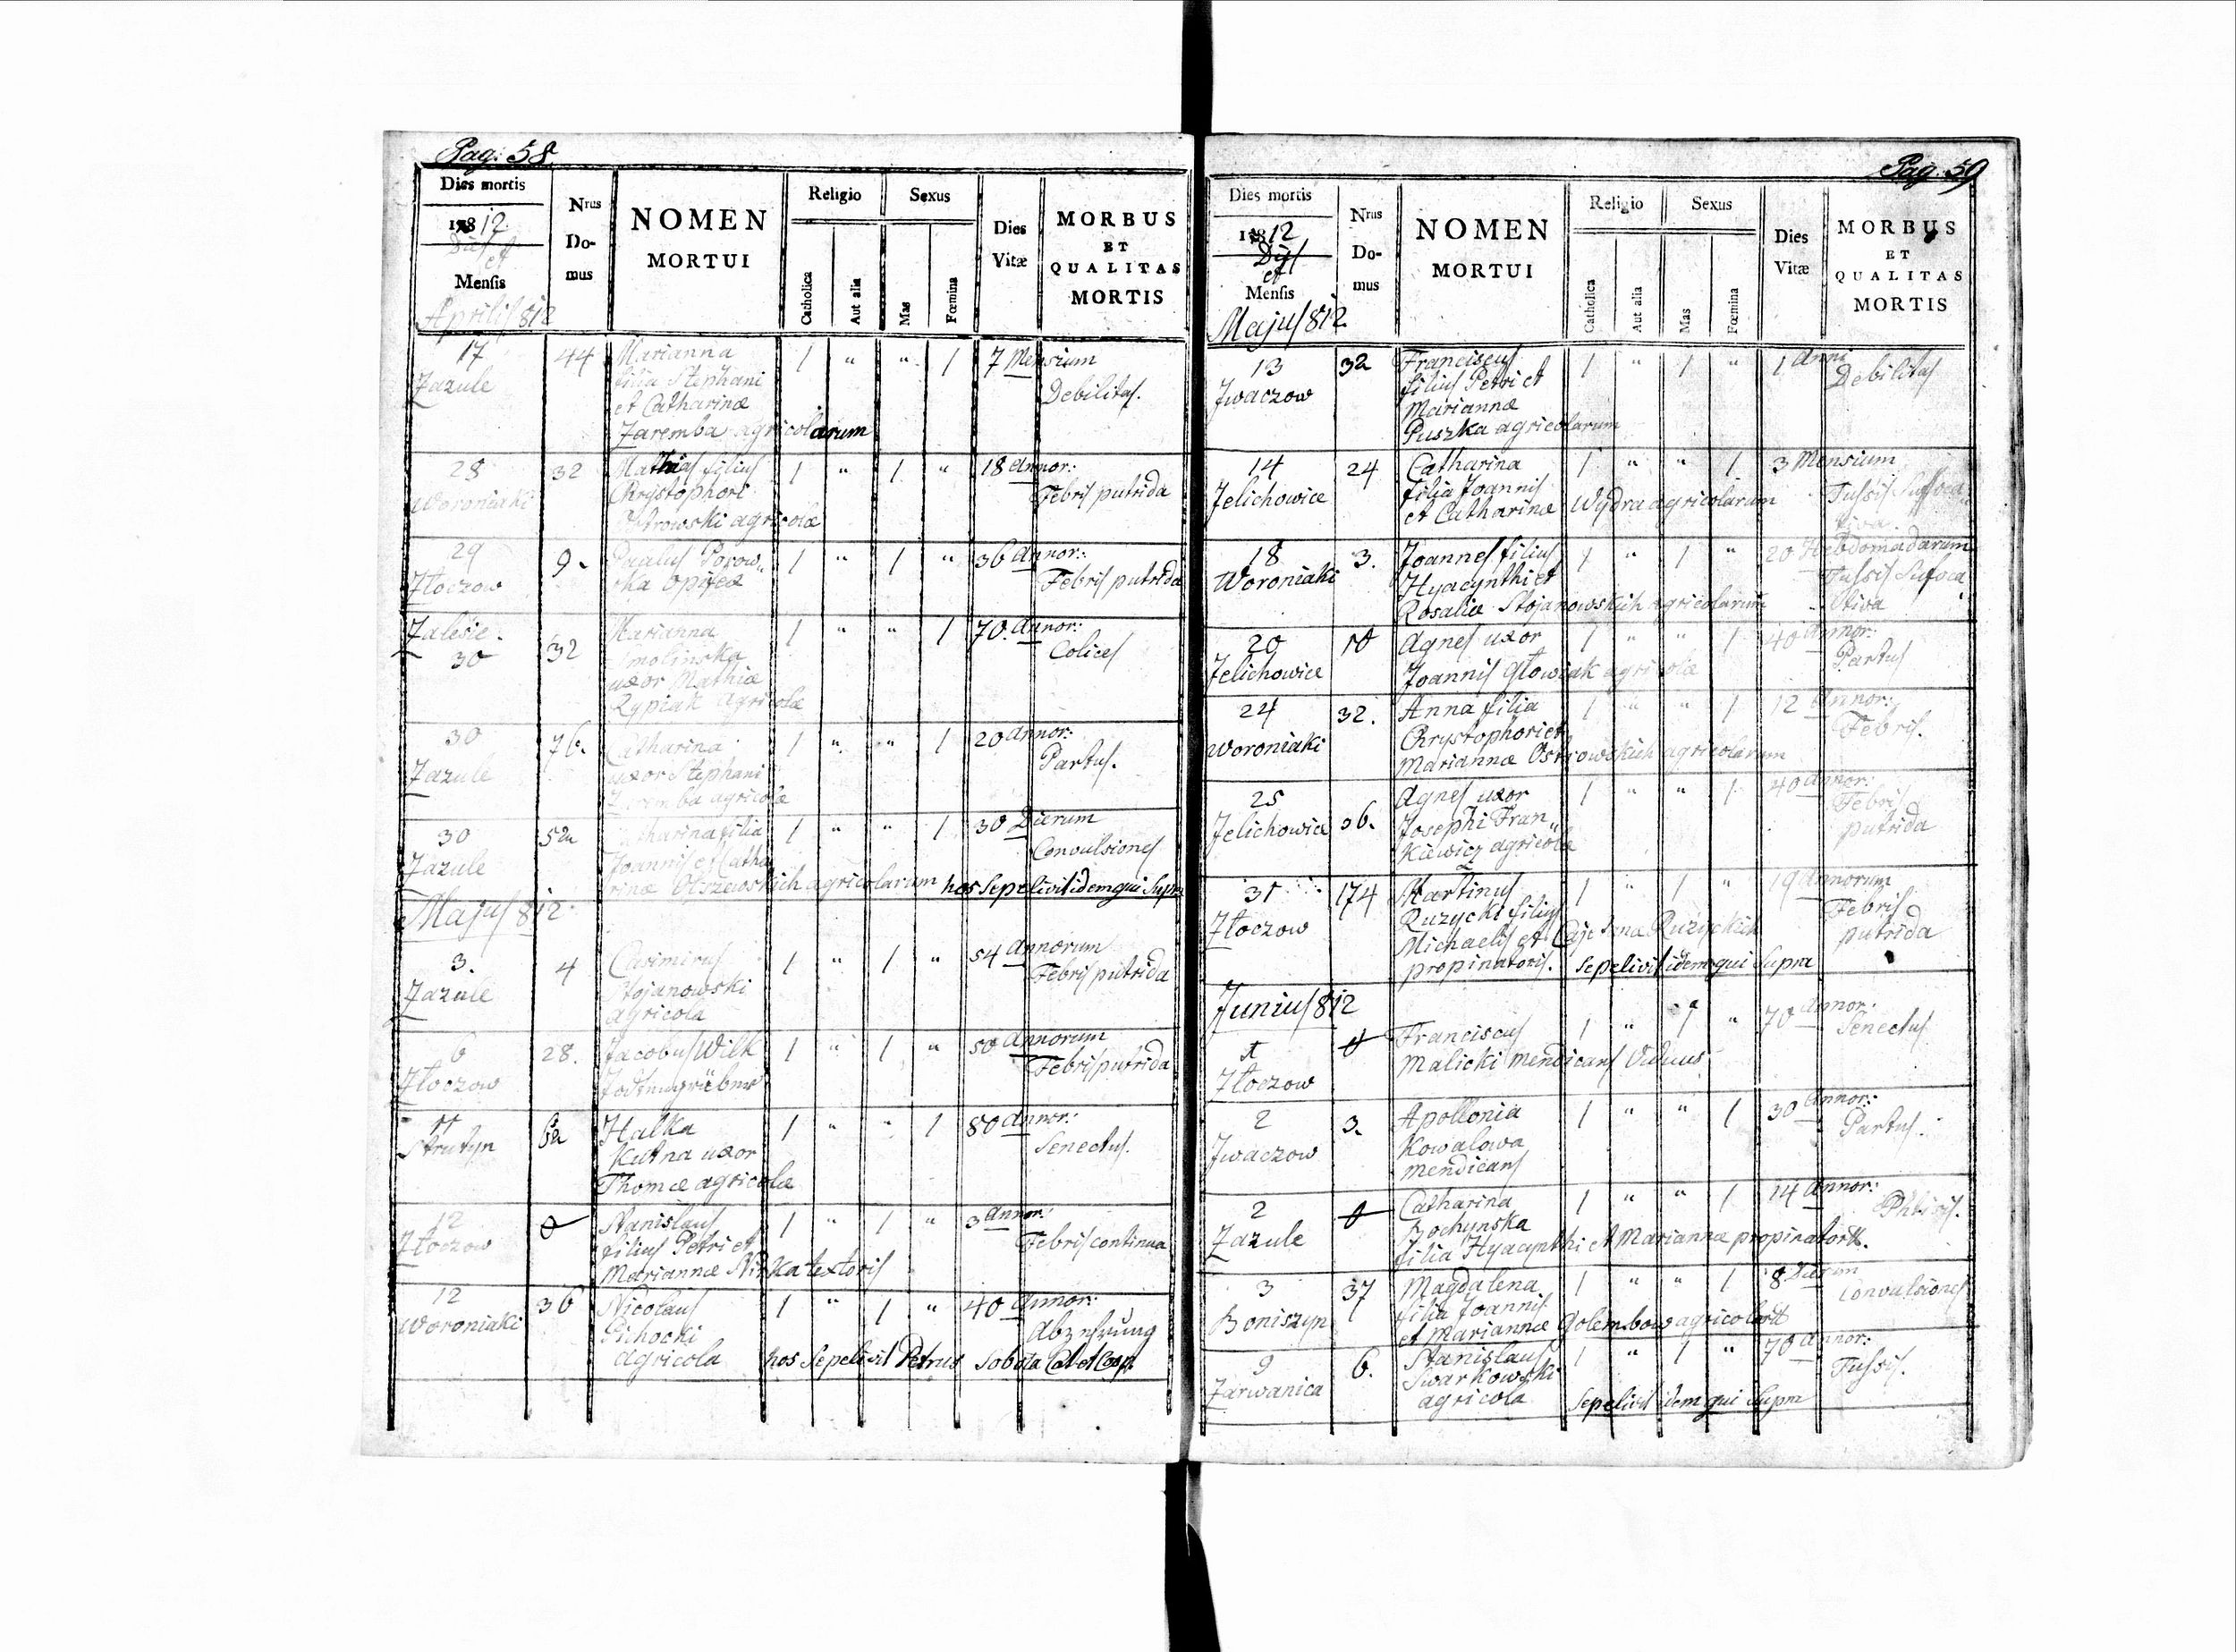 Pag: 58
Dies mortis
1812
Dies et
Mensis
Aprilis 812
Nrus Domus
NOMEN MORTUI
Religio
Catholica
Aut alia
Sexus
Mas
Fœmina
Dies Vitæ
MORBUS ET QUALITAS MORTIS
17 Zazule 44 Marianna 1 " " 1 7 Mensium
filia Stephani Debilitas.
et Catharinæ
Zaremba agricolarum
28 Woroniaki 32 Mathias filius 1 " 1 " 18 Annor:
Chrystophori Febris putrida
Ostrowski agricolæ
29 Złoczow 9. 1 " 1 " 36 Annor:
ka Opifex Febris putrida
Zalesie. 30 32 Marianna 1 " " 1 70. Annor:
Smolinska Colices
uxor Mathiæ
Rypiak Agricolæ
30 Zazule 76. Catharina 1 " " 1 20 Annor:
uxor Stephani Partus.
Zaremba agricolæ
30 Zazule 52 Catharina filia 1 " " 1 30 Dierum
Joannis et Catha Convulsiones
rinæ Olszewskich agricolarum hos Sepelivit idem qui Supra
Majus 812
3. Zazule 4 Casimirus 1 " 1 " 54 Annorum
Stojanowski Febris putrida
agricola
6 Złoczow 28. Jacobus Wilk 1 " 1 " 50 Annorum
Febris putrida
11 Strutyn Halka 1 " " 1 80 Annor:
Kutna uxor Senectus.
Thomæ agricolæ
12 Złoczow 0 Stanislaus 1 " 1 " 3 Annor:
filius Petri et Febris continua
Mariannæ textoris
12 Woroniaki 36 Nicolaus 1 " 1 " 40 Annor:
Cichocki Abzehrung
agricola hos Sepelivit Petrus Sobota
Pag. 59
Dies mortis
1812
Dies
et
Mensis
Majus 812
Nrus Domus
NOMEN MORTUI
Religio
Catholica
Aut alia
Sexus
Mas
Fœmina
Dies Vitæ
MORBUS ET QUALITAS MORTIS
13 Jwaczow 32 Franciscus 1 " 1 " 1 Anni
filius Petri et Debilitas
Mariannæ
Puszka agricolarum
14 Jelichowice 24 Catharina 1 " " 1 3 Mensium
filia Joannis Tussis Suffoca
et Catharinæ Wydra agricolarum tiva
18 Woroniaki 3. Joannes filius 1 " 1 " 20 Hebdomadarum
Hyacynthi et Tussis Suffoca
Rosaliæ Stojanowskich agricolarum tiva
20 Jelichowice 10 Agnes uxor 1 " " 1 40 Annor:
Joannis Głowiak agricolæ Partus
24 Woroniaki 32. Anna filia 1 " " 1 12 Annor:
Chrystophori et Febris.
Mariannæ Ostrowskich agricolarum
25 Jelichowice 36. Agnes uxor 1 " " 1 40 Annor:
Josephi Fran" Febris
kiewicz agricolæ putrida
31 Złoczow 174 Martinus 1 " 1 " 19 Annorum
Ruzycki filius Febris
Michaelis et Ruzyckich putrida
propinatoris. Sepelivit idem qui Supra
Junius 812
1 Złoczow 0 Franciscus 1 " 1 " 70 Annor:
Malicki mendicans Viduus Senectus
2 Jwaczow 3. Apollonia 1 " " 1 30 Annor:
Kowalowa Partus.
mendicans
2 Zazule 0 Catharina 1 " " 1 14 Annor:
Bochynska Phtisis.
filia Hyacynthi et Mariannæ
3 Boniszyn 37 Magdalena 1 " " 1 8 Dierum
filia Joannis Convulsiones
et Mariannæ Golembow
9 Zarwanica 6. Stanislaus 1 " 1 " 70 Annor:
Swarkowski Tussis.
agricola Sepelivit idem qui Supra